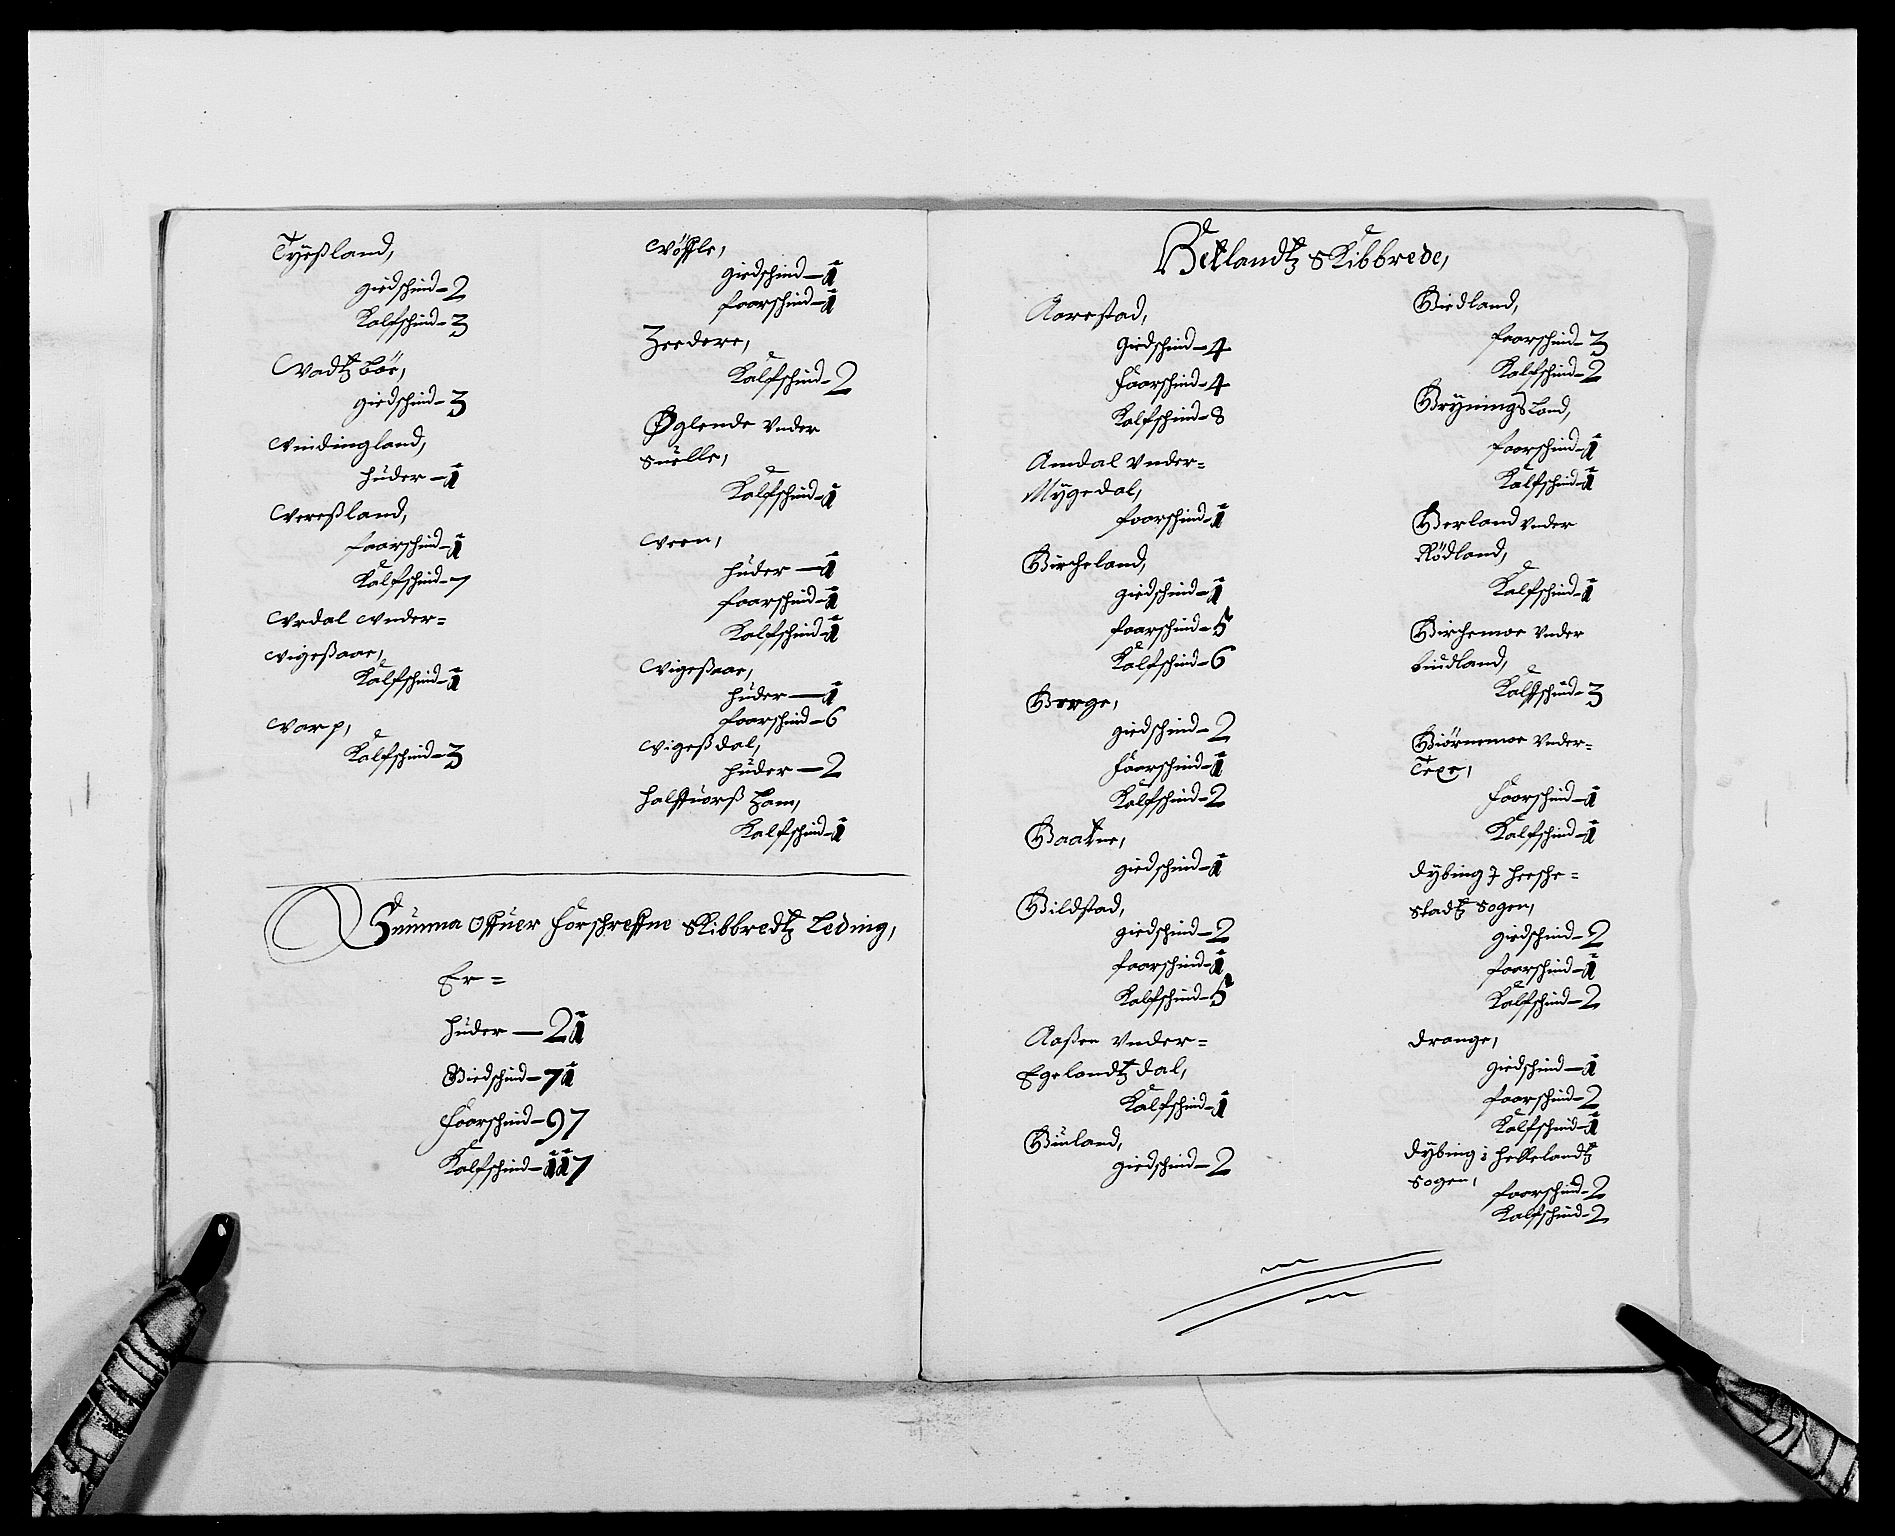 Tyeßland,
giedschind - 2
Kalfschind - 3
Vadtz Böe,
giedschind - 3
Vindingland,
huder - 1
Vereßland,
faarschind - 1
Kalfschind - 7
Vrdal Vnder=
Vigeßaae,
Kalfschind - 1
Varp,
Kalfschind - 3
Vößle,
giedschind - 1
faarschind - 1
Zeedere,
Kalfschind - 2
Øglende Vnder
Suelle,
Kalfschind - 1
Veen,
huder - 1
faarschind - 1
Kalfschind - 1
Vigeßaae,
huder - 1
faarschind - 6
Vigeßdal,
huder - 2
halffuorß Ham,
Kalfschind - 1
Summa Offuer Forschreffne Skibbredtz Leding,
Er=
huder - 21
Giedschind - 71
Faarschind - 97
Kalfschind - 117
Hetlandtz Skibbrede,
Aarestad,
Giedschind - 4
Faarschind - 4
Kalfschind - 8
Amdal Vnder=
Mygedal,
faarschind - 1
Bircheland,
giedschind - 1
faarschind - 5
Kalfschind - 6
Berge,
giedschind - 2
Faarschind - 1
Kalfschind - 2
Baatne,
giedschind - 1
Bildstad,
giedschind - 2
faarschind - 1
Kalfschind - 5
Aaßen Vnder=
Egelandtz dal,
Kalfschind - 1
Buland,
giedschind - 2
Biedland,
faarschind - 3
Kalfschind - 2
Bryningsland,
faarschind - 1
Kalfschind - 1
Berland Vnder
Rödland,
Kalfschind - 1
Birchemoe Vnder
Liudland,
Kalfschind - 3
Biörnemoe Vnder=
Texe,
Faarschind - 1
Kalfschind - 1
Dybing I heske=
stadtz Sogen,
giedschind - 2
faarschind - 1
Kalfschind - 2
Drange,
giedschind - 1
faarschind - 2
Kalfschind - 1
Dybing i hellelandtz
Sogen,
faarschind - 2
Kalfschind - 2